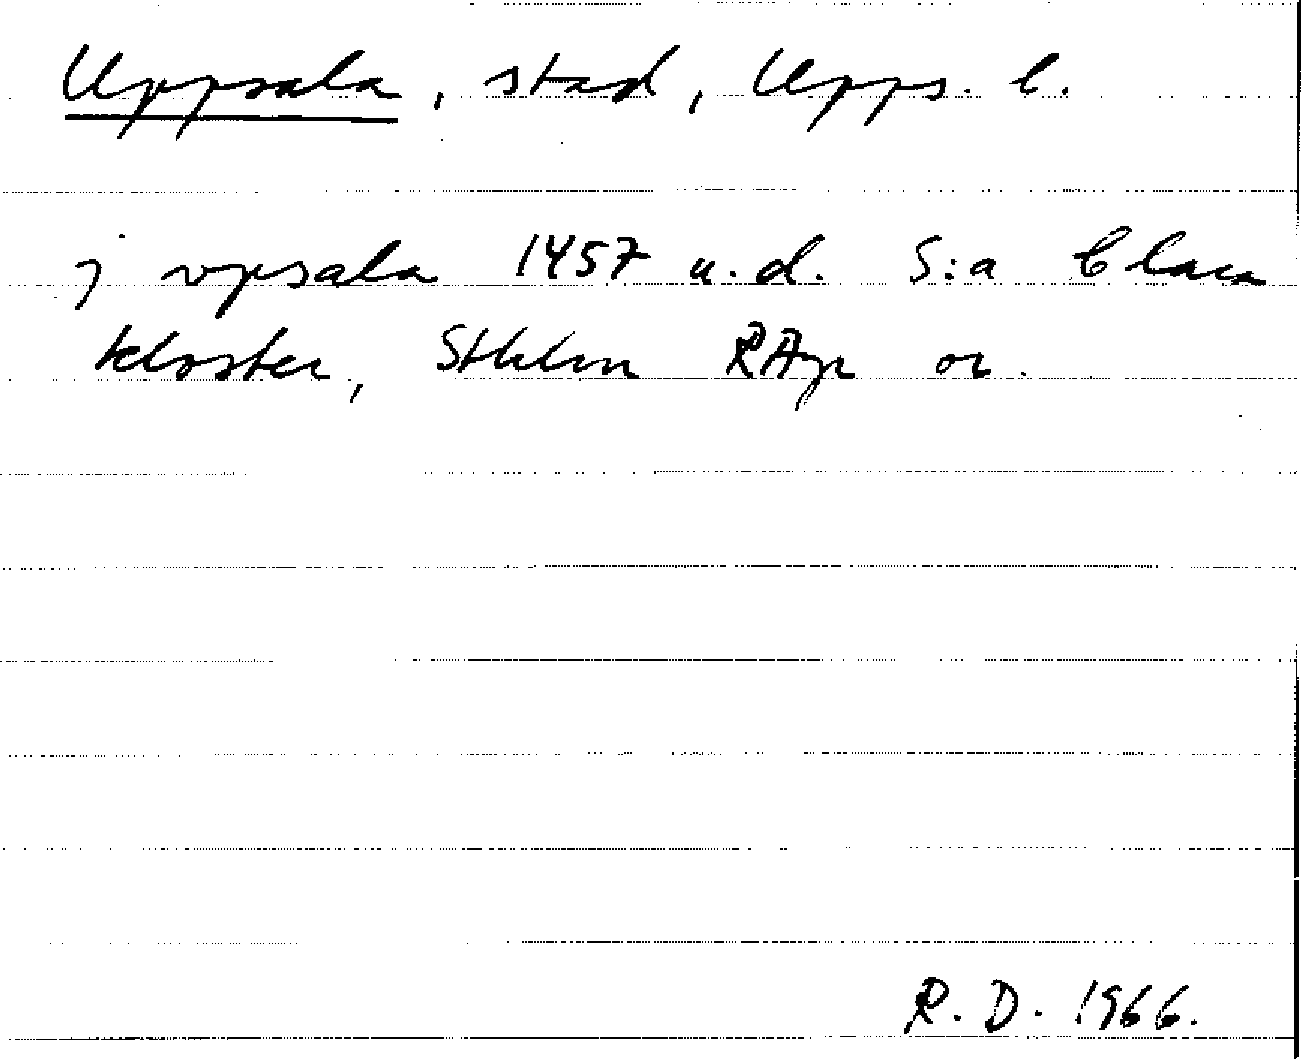 Uppsala, stad, Upps. l.
j vpsala 1457 u.d. S:a Clara
kloster, Sthlm RAp or.
R. D. 1966.